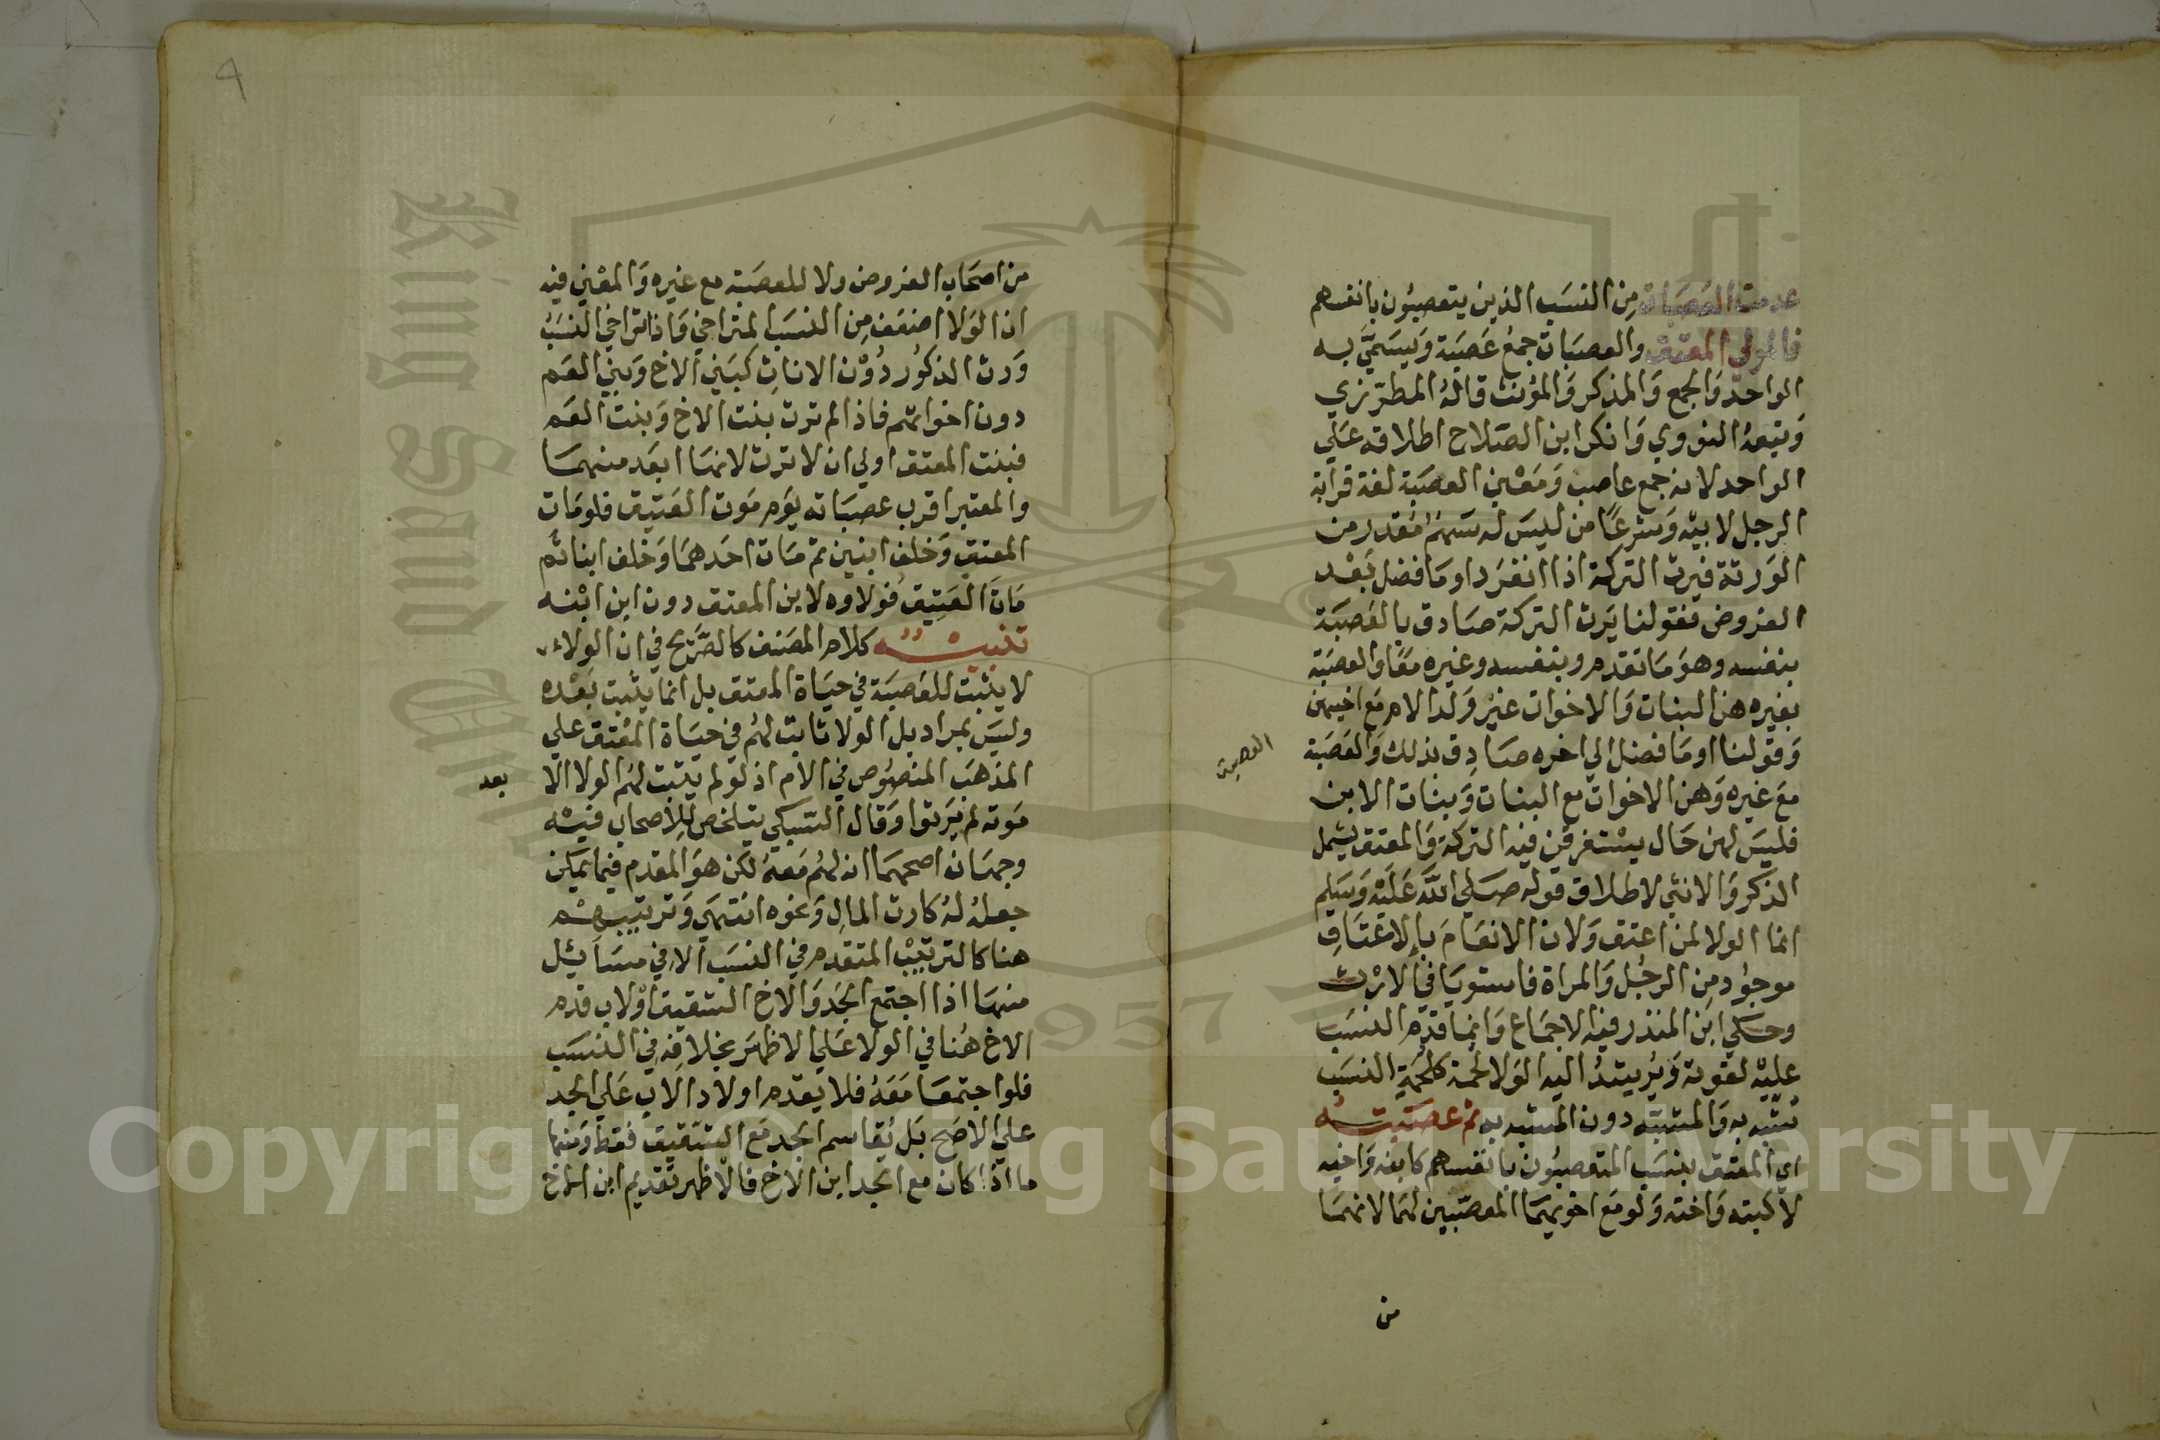 عدمت العصبات من النسب الذين يتعصبون بانفسهم
فالمولي المعتق والعصبات جمع عَصَبة وَيسَمَّي به
الواحد وَالجمع وَالمذكر وَالمؤنث قالهُ المطرّزي
وَتبعهُ النووي وَانكر ابن الصَلاح اطلاقه عَلَي
الواحد لانه جمع عاصب وَمَعْني العصَبَة لغة قرابة
الرجل لابيه وَشرعًا من ليسَ له سَهمٌ مُقدر من
الوَرثة فيرث التركة اذا انفرَد او مَا فضل بَعْد
الفروض فقولنا يَرث التركة صَادق بالعَصَبَة
بنفسه وهوَ مَا تقدم وبنفسه وغيره معًا والعصبَة
بغيره هن البنات وَالاخوات غيْر وَلد الام مَع اخيهن
وَقوْلنا او مَا فضل الي اخره صَادِق بذلك وَالعَصَبَة
العصبة
مَع غيره وَهن الاخوات مع البنات وَبنات الابن
فليسَ لهن حَال يسْتغرقن فيه التركة وَالمعتق يشمل
الذكر وَالانثي لاطلاق قوله صَلي الله عَلَيْه وَسَلم
انما الولا لمن اعتق وَلان الانعَام بالاعْتَاق
موجُود مِن الرجُل وَالمراة فاستويَا في الارْث
وحكي ابن المنذر فيه الاجمَاع وَانما قدّم النسَب
عليْه لقوته وَيُرشدُ اليه الوَلا لحمة كلحمةِ النسَب
شبّه به وَالمشبّه دون المشبه به ثم عصَبَتُه
اي المعتق بنسَب المتعصبُون بانفسهم كابنه وَاخيه
لا كبنته وَاخته وَلو مَع اخويهمَا المعصّبين لهمَا لانهمَا
من
٩
من اصحَاب الفروض ولا للعصَبَة مع غيره وَالمعْني فيه
ان الوَلا اضعَف مِن النسَب المتراخي وَاذا تراخي النسَبُ
وَرث الذكُور دُوْن الاناث كبَني الاخ وَبني العَم
دون اخواتهم فاذا لم ترث بنت الاخ وَبنت العَم
فبنت المعتق اولي ان لا ترث لانهَا ابعَد منهمَا
والمعتبر اقرب عصبَاته يَوم مَوت العَتيق فلو مَات
المعتق وَخلف ابنين ثم مَات احَدهمَا وَخلف ابنا ثم
مَات العَتِيق فوَلاوه لابن المعتق دون ابن ابْنه
تنبيْه كلام المصَنف كالصَّريح في ان الولاء
لا يثبت للعَصبَة في حيَاة المعتق بل انما يثبت بَعْده
وليسَ بمراد بل الولا ثابت لهُم في حيَاة المعْتق علي
المذهَب المنصُوص في الام اذ لوْ لم يثبت لهم الولا الا
بعد
مَوته لم يَرثوا وَقال السّبكي يتلخص للاصحاب فيْه
وجهَان اصحهمَا انه لهُم مَعهُ لكن هوَ المقدم فيمَا يمكن
جعلهُ لهُ كارث المالِ وَنحوه انتهَي وَترتيبهم
هنا كالترتيْب المتقدم في النسَب الا في مسَائل
منهَا اذا اجتمع الجَد وَالاخ الشقيق اوْ لاب قدم
الاخ هُنا في الولا عَلي الاظهَر بخلافه في النسَب
فلو اجتمعَا مَعَهُ فلا يقدم اولاد الاب عَلي الجد
علي الاصَح بَل يُقاسم الجد مَع الشقيق فقط وَمنها
ما اذا كان مع الجد ابن الاخ فالاظهر تقديم ابن الاخ
King Saud University
1957
Copyright © King Saud University